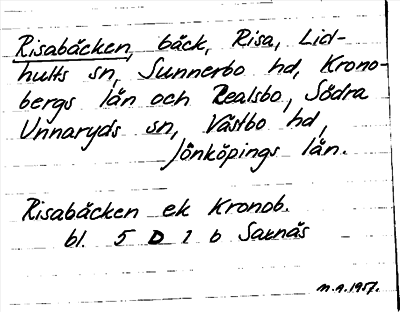 Risabäcken, bäck, Risa, Lid-
hults sn, Sunnerbo hd, Krono-
bergs län och Realsbo, Södra
Unnaryds sn, Västbo hd,
Jönköpings län.
Risabäcken ek Kronob.
bl. 5 D 1 b Saxnäs
n.a. 1957.